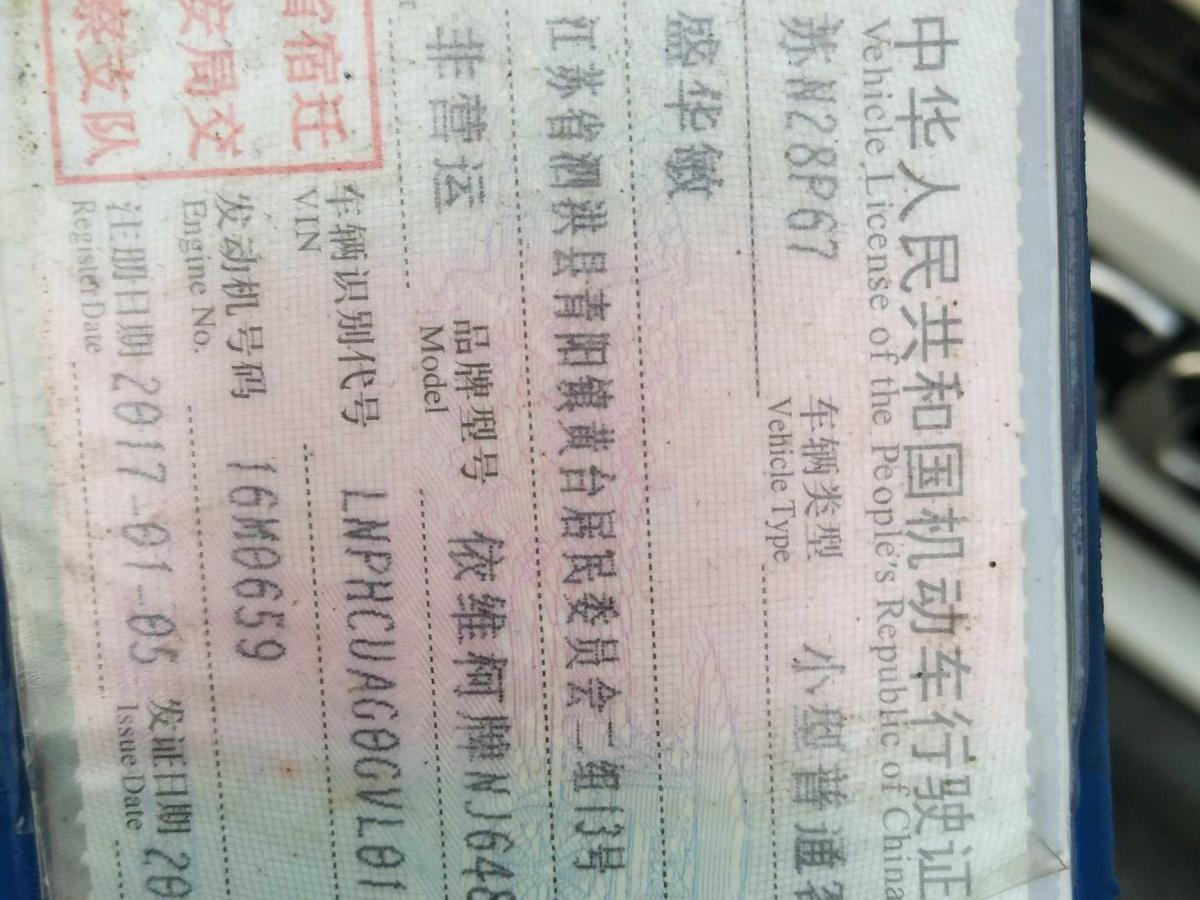 中华人民共和国机动车行驶证
Vehicle License of the People's Republic of China
苏N28P67 车辆类型 小型普通客
Vehicle Type
盛华敏
江苏省泗洪县青阳镇黄台居民委员会二组门3号
非营运 品牌型号 依维柯牌NJ648
Model
省宿迁
安局交
察支队
车辆识别代号 LNPHCUAG0GVL01
VIN
发动机号码 16M0659
Engine No.
注册日期 2017-01-05 发证日期 20
Register Date Issue Date